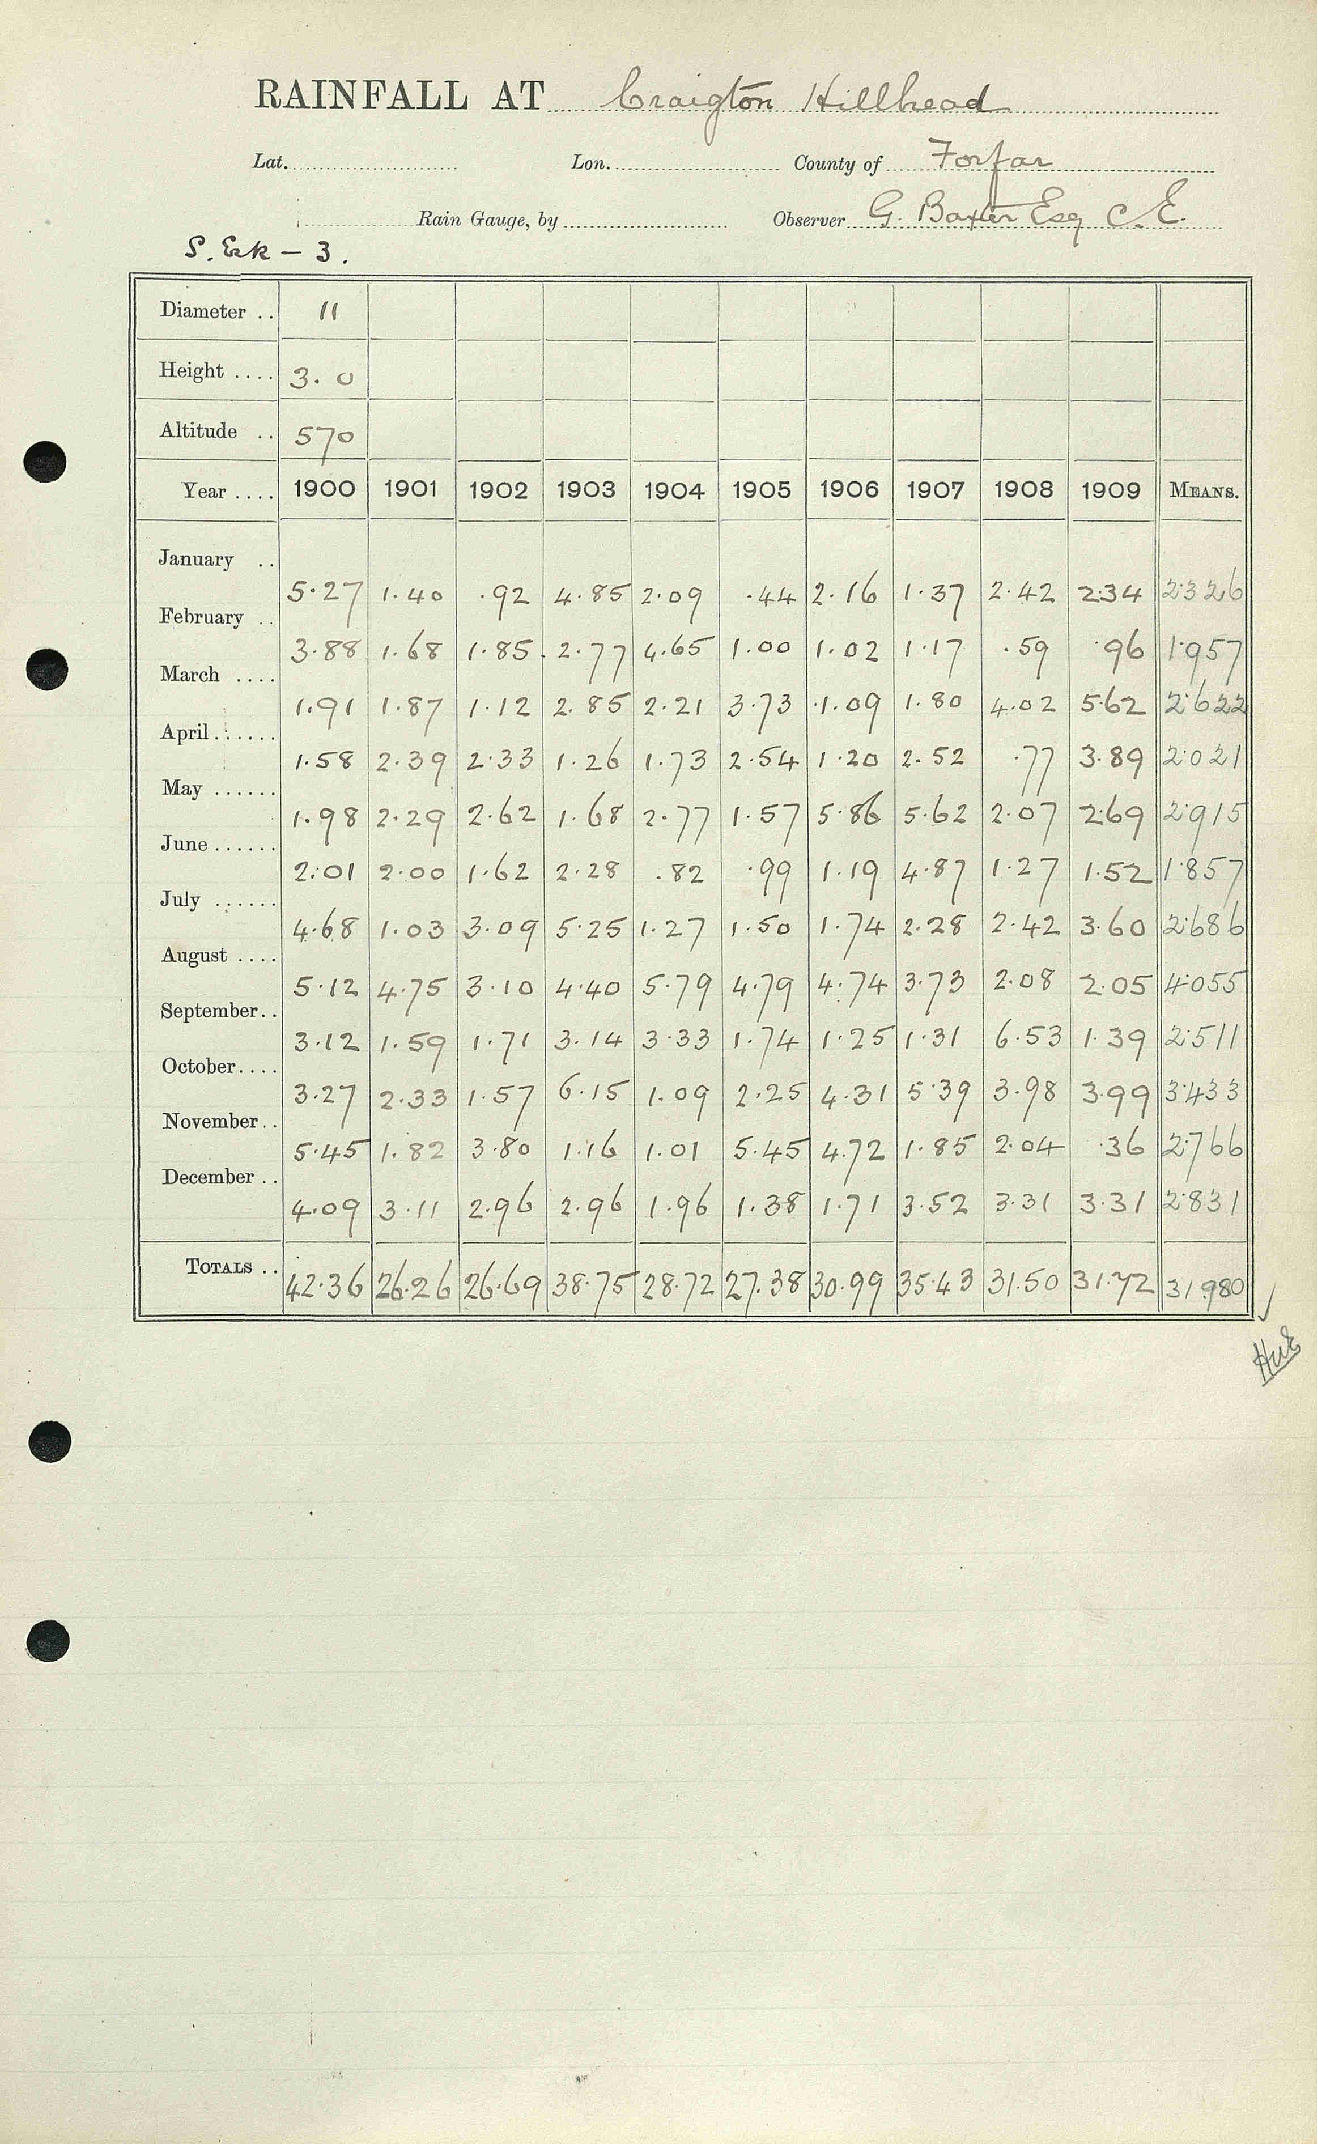 RAINFALL AT Craigton Hillhead
Lat. Lon. County of Forfar
Rain Gauge, by Observer G. Baxter Esq C.E.
Diameter .. 11
Height .... 3. 0
Altitude .. 570
Year .... 1900 1901 1902 1903 1904 1905 1906 1907 1908 1909 MEANS.
January .. 5.27 1.40 .92 4.85 2.09 .44 2.16 1.37 2.42 2.34 2.326
February .. 3.88 1.68 1.85 2.77 4.65 1.00 1.02 1.17 .59 .96 1.957
March .... 1.91 1.87 1.12 2.85 2.21 3.73 1.09 1.80 4.02 5.62 2.622
April ...... 1.58 2.39 2.33 1.26 1.73 2.54 1.20 2.52 .77 3.89 2.021
May ...... 1.98 2.29 2.62 1.68 2.77 1.57 5.86 5.62 2.07 2.69 2.915
June ...... 2.01 2.00 1.62 2.28 .82 .99 1.19 4.87 1.27 1.52 1.857
July ...... 4.68 1.03 3.09 5.25 1.27 1.50 1.74 2.28 2.42 3.60 2.686
August .... 5.12 4.75 3.10 4.40 5.79 4.79 4.74 3.73 2.08 2.05 4.055
September .. 3.12 1.59 1.71 3.14 3.33 1.74 1.25 1.31 6.53 1.39 2.511
October .... 3.27 2.33 1.57 6.15 1.09 2.25 4.31 5.39 3.98 3.99 3.433
November .. 5.45 1.82 3.80 1.16 1.01 5.45 4.72 1.85 2.04 .36 2.766
December .. 4.09 3.11 2.96 2.96 1.96 1.38 1.71 3.52 3.31 3.31 2.831
TOTALS .. 42.36 26.26 26.69 38.75 28.72 27.38 30.99 35.43 31.50 31.72 31.980